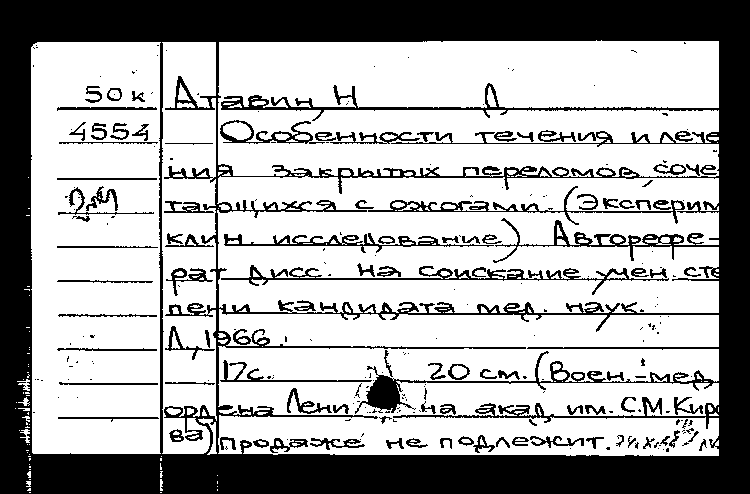 50к Атавин, Н Д
4554 Особенности течения и лече
ния закрытых переломов, соче
тающихся с ожогами. (Эксперим
клин. исследование) Авторефе-
рат дисс. на соискание учен. сте
пени кандидата мед. наук.
Л., 1966.
17с. 20 см. (Воен.-мед
ордена Лени на акад. им. С.М. Киро
ва) продаже не подлежит.